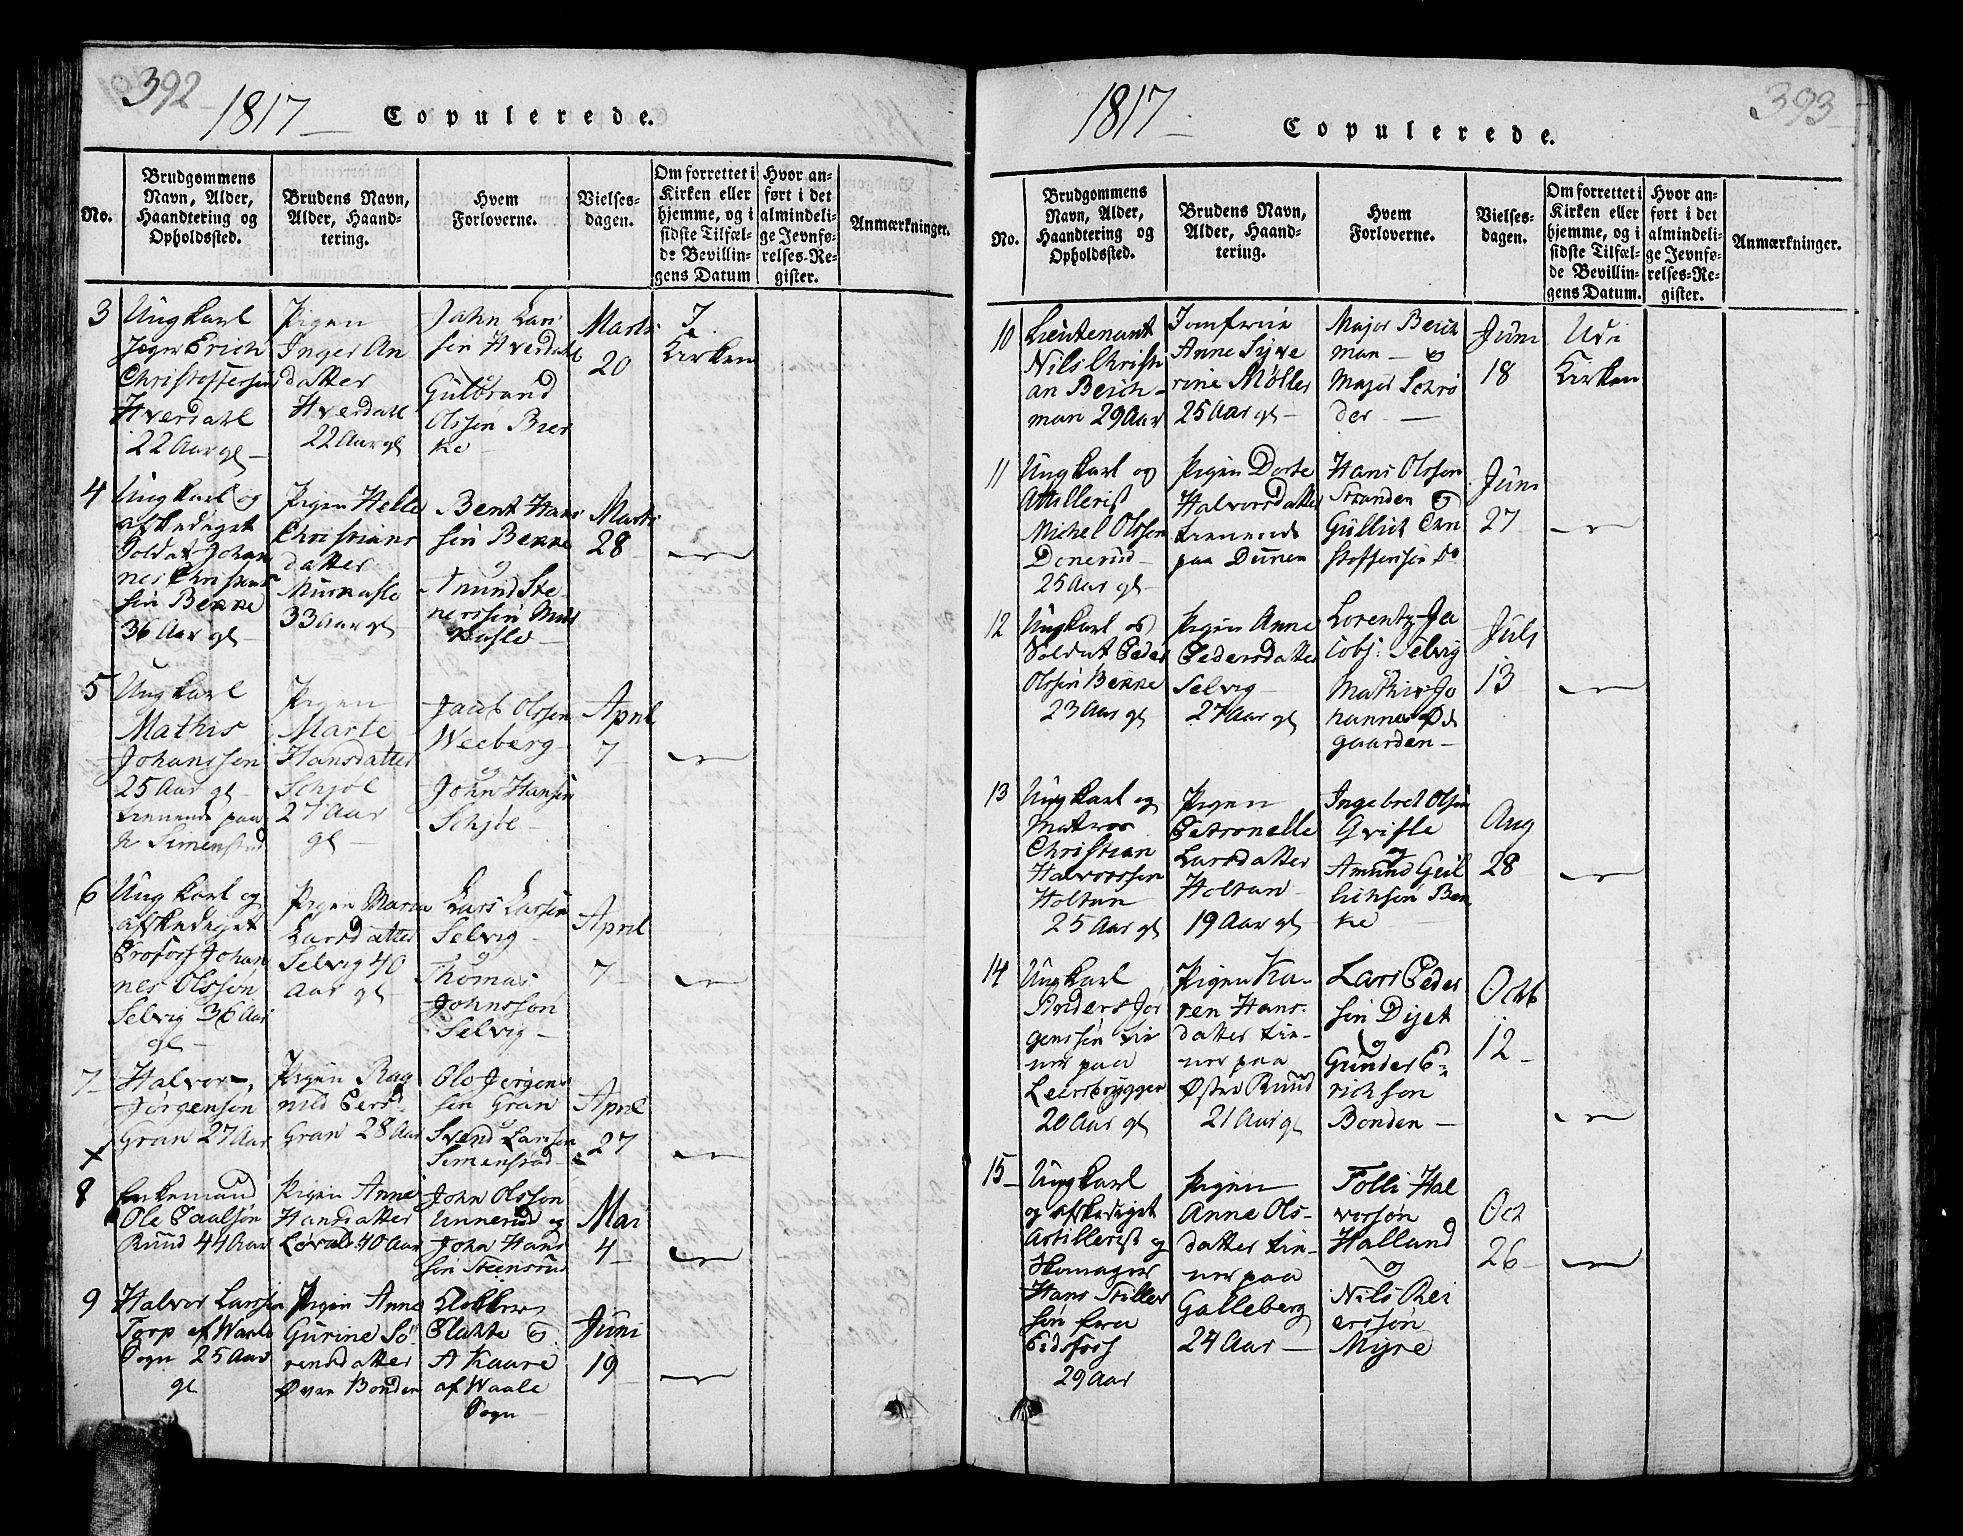 392
1817
Copulerede.
No.
Brudgommens
Navn, Alder,
Haandtering og
Opholdssted.
Brudens Navn,
Alder, Haand-
tering.
Hvem
Forloverne.
Vielses-
dagen.
Om forrettet i
Kirken eller
hjemme, og i
sidste Tilfæl-
de Bevillin-
gens Datum
Hvor an-
ført i det
almindeli-
ge Jevnfø-
relses-Re-
gister.
Anmærkninger.
3
Ungkarl
Jæger Erich
Christoffersen
Hverdahl
22 Aar gl
Pigen
Inger An
datter
Hverdahl
22 Aar gl
John Lars
sen Hverdahl
og
Gulbrand
Olssøn Bier
ke
Marti
20
I
Kirken
4
Ungkarl og
afskediget
Soldat Johan
nes Christens
søn Bekke
36 Aar gl
Pigen Helle
Christians
datter
33 Aar gl
Bent Hans
søn Bekke
og
Amund Ste
nerssøn
Marti
28
5
Ungkarl
Mathis
Johanssen
25 Aar gl
tienende paa
Simenstad
Pigen
Marte
Hansdatter
Schjøl
27 Aar
gl
Jacob Olssøn
Weeberg
og
John Hansen
Schjøl
April
7
6
Ungkarl og
afskediget
Johan
nes Olssøn
Selvig 36 Aar
gl
Pigen Maria
Larsdatter
Selvig 40
Aar gl
Lars Larsen
Selvig
og
Thomas
Johnssøn
Selvig
April
7
7
Halvor
Jørgensøn
Gran 27 Aar
Pigen Rag
nild Persd
Gran 28 Aar
Ole Jørgens
søn Gran
og
Svend Larsen
Simenstad
April
27
8
Enkemand
Ole Paalsøn
Ruud 44 Aar
Pigen Anne
Hansdatter
40 Aar
John Olssøn
Unnerud og
John Hans
søn Steensrud
Mai
4
9
Halvor Larsen
Torp af Waale
Sogn 25 Aar
gl
Pigen Anne
Gurine Sø
rensdatter
Øvre Bonden
Klokker
Platte &
A Kaare
af Waale
Sogn
Juni
19
393
1817
Copulerede.
No.
Brudgommens
Navn, Alder,
Haandtering og
Opholdssted.
Brudens Navn,
Alder, Haand-
tering.
Hvem
Forloverne.
Vielses-
dagen.
Om forrettet i
Kirken eller
hjemme, og i
sidste Tilfæl-
de Bevillin-
gens Datum.
Hvor an-
ført i det
almindeli-
ge Jevnfø-
relses-Re-
gister.
Anmærkninger.
10
Lieutenant
Nils Christi
an Beich-
man 29 Aar
Jomfrue
Anne Syve
rine Møller
25 Aar gl
Major Beich
man og
Major Schrø
der
Juni
18
Udi
Kirken
11
Ungkarl og
Artillerist
Michel Olsson
Donerud
25 Aar gl
Pigen Dorte
Halvorsdatter
tienende
paa Dunen
Hans Olsson
Stranden og
Gullich Chri
stoffersen Do
Juni
27
12
Ungkarl og
Soldat Peder
Olssøn Bekke
23 Aar gl
Pigen Anne
Pedersdatter
Selvig
27 Aar gl
Lorentz Ja
cobs: Selvig
og
Mathis Jo
hannes Ød
gaarden
Juli
13
13
Ungkarl og
Matros
Christian
Halvorssen
Holtan
25 Aar gl
Pigen
Petronelle
Larsdatter
Holtan
19 Aar gl
Ingebret Olsen
Grisle
og
Amund Gul
lichsøn Ben
ke
Aug
28
14
Ungkarl
Anders Jør
genssen tie
ner paa
Leersbryggen
20 Aar gl
Pigen Ka-
ren Hans
datter tie-
ner paa
Østre Ruud
21 Aar gl
Lars Peder
søn Dyet
og
Gunder E-
richsøn
Bonden
Octb
12
15
Ungkarl
og afskediget
Artillerist og
Skomager
Hans Stiller
søn fra
Eidsfoss
29 Aar
Pigen
Anne Ols-
datter tie-
ner paa
Galleberg
24 Aar
Tolli Hal
vorsøn
Halland
og
Nils Rei
erssøn
Myre
Oct
26